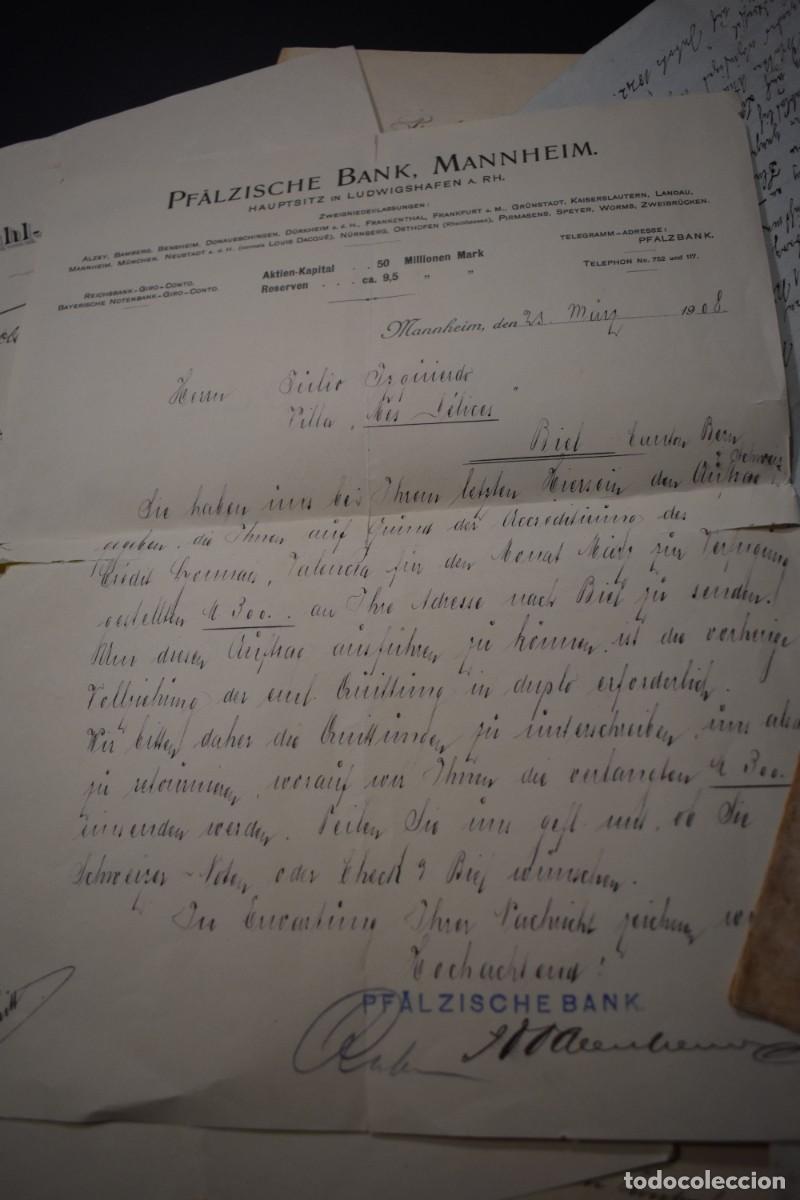 PFÄLZISCHE BANK, MANNHEIM.
HAUPTSITZ IN LUDWIGSHAFEN A. RH.
ZWEIGNIEDERLASSUNGEN:
ALZEY, BAMBERG, BENSHEIM, DONAUESCHINGEN, DÜRKHEIM a. d. H., FRANKENTHAL, FRANKFURT a. M., GRÜNSTADT, KAISERSLAUTERN, LANDAU,
MANNHEIM, MÜNCHEN, NEUSTADT a. d. H. (vormals LOUIS DACQUÉ), NÜRNBERG, OSTHOFEN (Rheinhessen), PIRMASENS, SPEYER, WORMS, ZWEIBRÜCKEN.
REICHSBANK-GIRO-CONTO.
BAYERISCHE NOTENBANK-GIRO-CONTO.
Aktien-Kapital . . 50 Millionen Mark
Reserven . . . ca. 9,5 " "
TELEGRAMM-ADRESSE:
PFALZBANK.
TELEPHON No. 752 und 117.
Mannheim, den 21. März 1908
Herrn Julio Izquierdo
Villa „Mes Délices"
Biel Canton Bern
Schweiz
Sie haben uns bei Ihrem letzten Hiersein den Auftrag
gegeben, die Ihnen auf Grund der Accreditirung des
Crédit Lyonnais, Valencia für den Monat März zur Verfügung
gestellten M 300.- an Ihre Adresse nach Biel zu senden.
Um diesen Auftrag ausführen zu können, ist die vorherige
Vollziehung der einl. Quittung in duplo erforderlich.
Wir bitten daher die Quittungen zu unterschreiben, uns
zu retournieren, worauf wir Ihnen die verlangten M 300.-
einsenden werden. Teilen Sie uns gefl. mit, ob Sie
Schweizer-Noten oder Check a/ Biel wünschen.
In Erwartung Ihrer Nachricht zeichnen
Hochachtend!
PFÄLZISCHE BANK.
todocoleccion